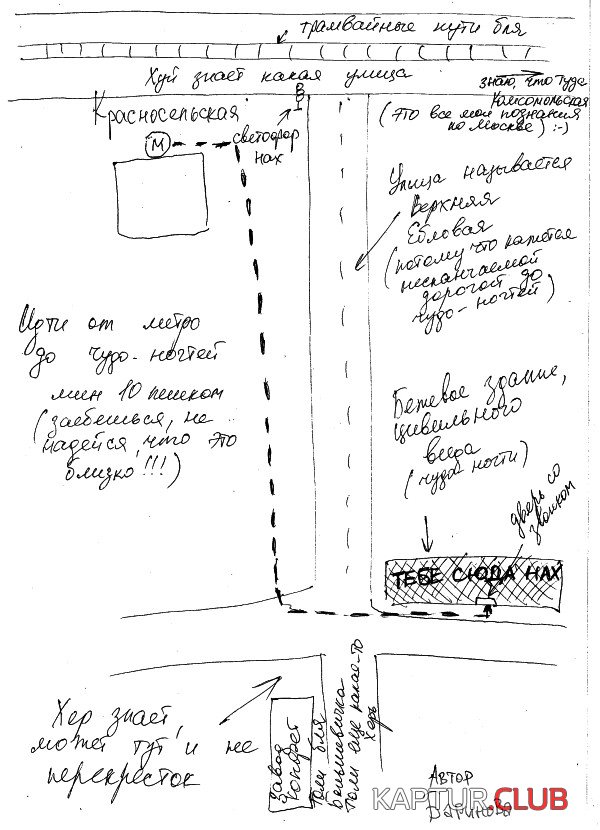 трамвайные пути бля
Хуй знает какая улица
знаю, что туда
Комсомольская
(это все мои познания
по Москве) :-)
Красносельская
М
светофор
нах
Улица называется
Верхняя
Ебловая
(потому что кажется
нескончаемой
дорогой до
чудо-ногтей)
Идти от метро
до чудо-ногтей
мин 10 пешком
(заебешься, не
надейся, что это
близко!!!)
Бежевое здание,
цивильного
вида
(чудо ногти)
дверь со
звонком
ТЕБЕ СЮДА НАХ
Хер знает,
может тут и не
перекресток
завод
конфет
толи бля
Большевичка
толи еще какая-то
херь
Автор
KAPTUR.CLUB